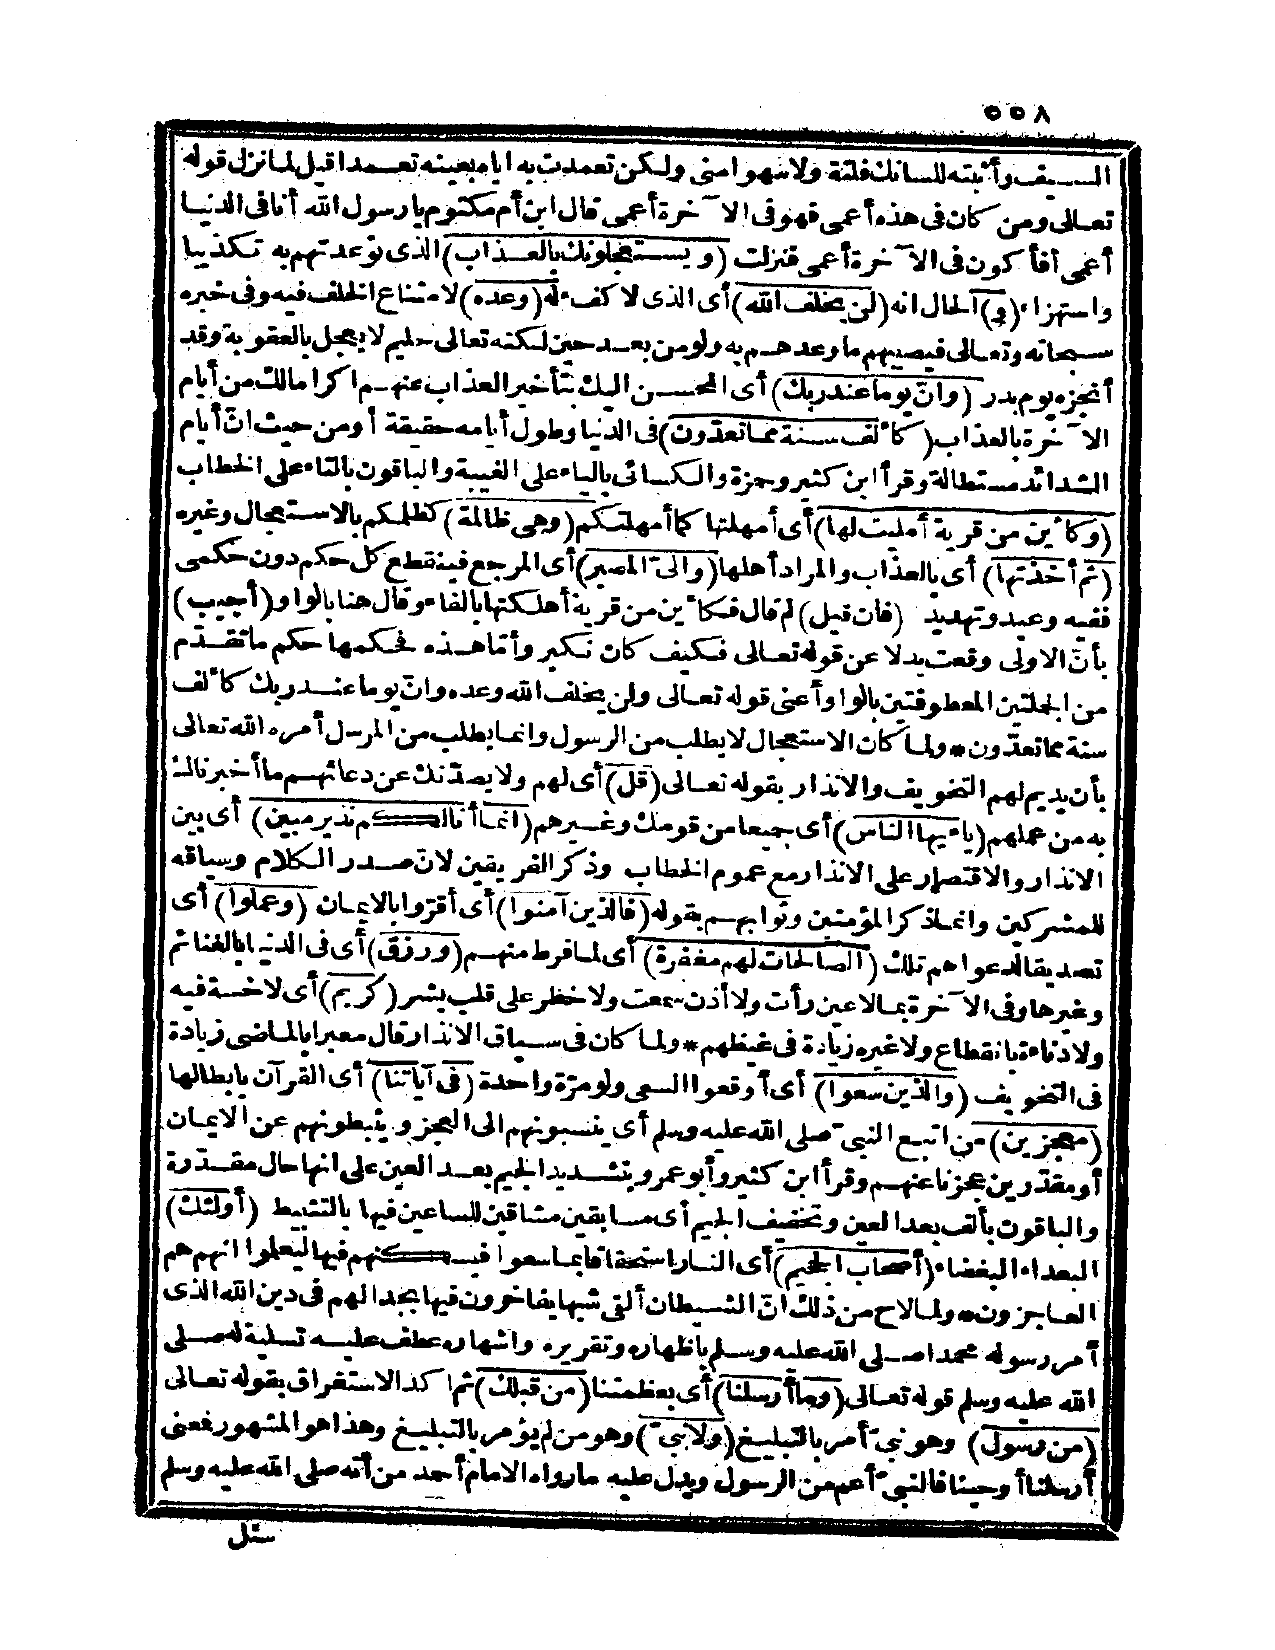 ٥٥٨
السيف وأثبته للسانك فلتة ولا سهوا منى ولكن تعمدت به اياه بعينه تعمدا قيل لما نزل قوله
تعالى ومن كان فى هذه أعمى فهو فى الآخرة أعمى قال ابن أم مكتوم يا رسول الله أنا فى الدنيا
أعمى أفأ كون فى الآخرة أعمى فنزلت (ويستعجلونك بالعذاب) الذى توعدتهم به تكذيبا
واستهزاء (و) الحال انه (لن يخلف الله) أى الذى لا كفء له (وعده) لامتناع الخلف فيه وفى خبره
سبحانه وتعالى فيصيبهم ما وعدهم به ولو من بعد حين لكنه تعالى حليم لا يعجل بالعقوبة وقد
أنجزه يوم بدر (وانّ يوما عند ربك) أى المحسن اليك بتأخير العذاب عنهم اكراما لك من أيام
الآخرة بالعذاب (كألف سنة مما تعدّون) فى الدنيا وطول أيامه حقيقة أو من حيث انّ أيام
الشدائد مستطالة وقرأ ابن كثير وحمزة والكسائى بالياء على الغيبة والباقون بالتاء على الخطاب
(وكأين من قرية أمليت لها) أى أمهلتها كما أمهلتكم (وهى ظالمة) كظلمكم بالاستعجال وغيره
(ثم أخذتها) أى بالعذاب والمراد أهلها (والىّ المصير) أى المرجع فينقطع كل حكم دون حكمى
ففيه وعيد وتهديد (فان قيل) لم قال فكأين من قرية أهلكتها بالفاء وقال هنا بالواو (أجيب)
بأنّ الاولى وقعت بدلا عن قوله تعالى فكيف كان نكير وأمّا هذه فحكمها حكم ما تقدّم
من الجملتين المعطوفتين بالواو أعنى قوله تعالى ولن يخلف الله وعده وانّ يوما عند ربك كألف
سنة مما تعدّون * ولما كان الاستعجال لا يطلب من الرسول وانما يطلب من المرسل أمره الله تعالى
بأن يديم لهم التخويف والانذار بقوله تعالى (قل) أى لهم ولا يصدّنك عن دعائهم ما أخبرناك
به من عملهم (يا أيها الناس) أى جميعا من قومك وغيرهم (انما أنا لكم نذير مبين) أى بين
الانذار والاقتصار على الانذار مع عموم الخطاب وذكر الفريقين لانّ صدر الكلام وسياقه
للمشركين وانما ذكر المؤمنين وثوابهم بقوله (فالذين آمنوا) أى أقرّوا بالايمان (وعملوا) أى
تصديقا لدعواهم تلك (الصالحات لهم مغفرة) أى لما فرط منهم (ورزق) أى فى الدنيا بالغنائم
وغيرها وفى الآخرة بما لا عين رأت ولا أذن سمعت ولا خطر على قلب بشر (كريم) أى لا خسة فيه
ولا دناءة بانقطاع ولا غيره زيادة فى غيظهم * ولما كان فى سياق الانذار قال معبرا بالماضى زيادة
فى التخويف (والذين سعوا) أى أوقعوا السعى ولو مرّة واحدة (فى آياتنا) أى القرآن بابطالها
(معجزين) من اتبع النبىّ صلى الله عليه وسلم أى ينسبونهم الى العجز ويثبطونهم عن الايمان
أو مقدّرين عجزنا عنهم وقرأ ابن كثير وأبو عمرو بتشديد الجيم بعد العين على انها حال مقدّرة
والباقون بألف بعد العين وتخفيف الجيم أى مسابقين مشاقين للساعين فيها بالتثبيط (أولئك)
البعداء البغضاء (أصحاب الجحيم) أى النار استحقاقا بما سعوا فيسكنهم فيها ليعلموا انهم هم
العاجزون * ولما لاح من ذلك انّ الشيطان ألقى شبها يفاخرون فيها بجدالهم فى دين الله الذى
أمر رسوله محمدا صلى الله عليه وسلم باظهاره وتقريره واشهاره عطف عليه تسلية له صلى
الله عليه وسلم قوله تعالى (وما أرسلنا) أى بعظمتنا (من قبلك) ثم أكد الاستغراق بقوله تعالى
(من رسول) وهو نبىّ أمر بالتبليغ (ولا نبىّ) وهو من لم يؤمر بالتبليغ وهذا هو المشهور فعنى
أرسلنا أوحينا فالنبىّ أعم من الرسول ويدل عليه ما رواه الامام أحمد من أنه صلى الله عليه وسلم
سئل